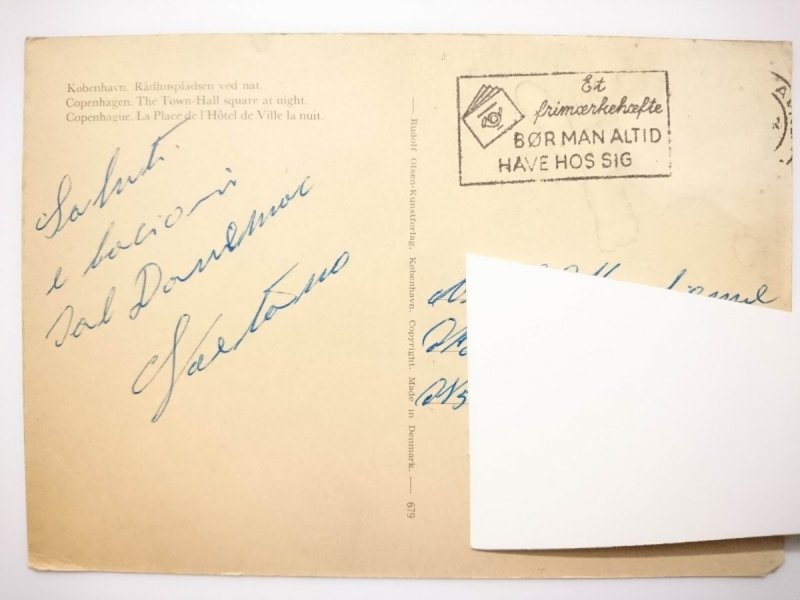 København. Rådhuspladsen ved nat.
Copenhagen. The Town-Hall square at night.
Copenhague. La Place de l'Hôtel de Ville la nuit.
Saluti
e bacioni
dal Danemarc
Gaetano
Rudolf Olsen-Kunstforlag, København. Copyright. Made in Denmark. — 679
Et
frimærkehæfte
BØR MAN ALTID
HAVE HOS SIG